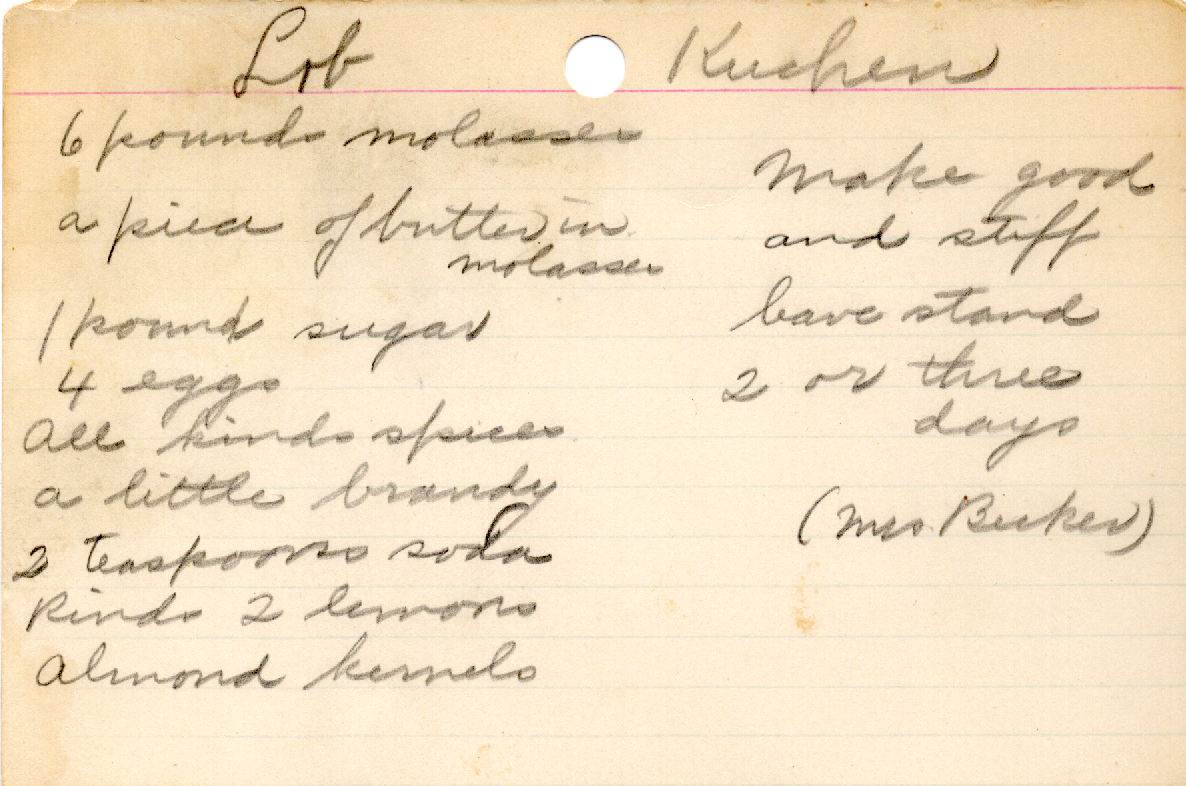 Lob Kuchen
6 pounds molasses
a piece of butter in
molasses
1 pound sugar
4 eggs
All kinds spices
a little brandy
2 teaspoons soda
Rinds 2 lemons
Almond kernels
Make good
and stiff
leave stand
2 or three
days
(Mrs Becker)